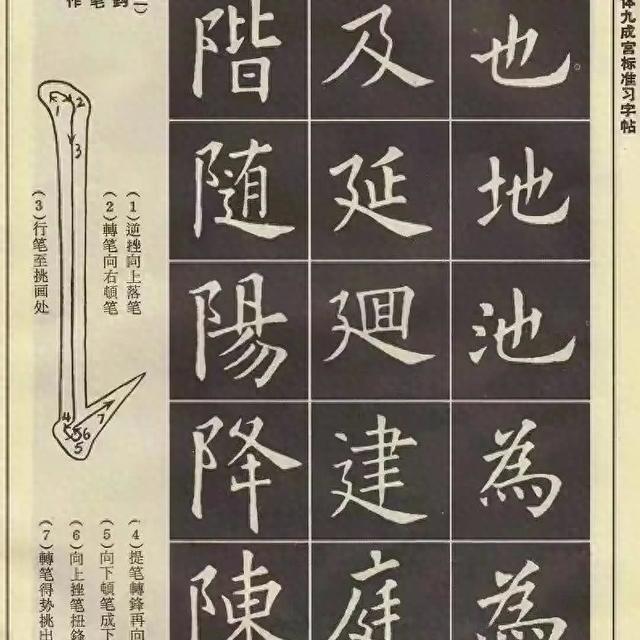 体九成宫标准习字帖
也
地
池
為
為
及
延
廻
建
庭
階
隨
陽
降
陳
(1)逆挫向上落笔
(2)轉笔向右頓笔
(3)行笔至挑画处
(4)提笔轉鋒再向
(5)向下頓笔成下
(6)向上挫笔扭鋒
(7)轉笔得势挑出
1
2
3
4
5
5
6
7